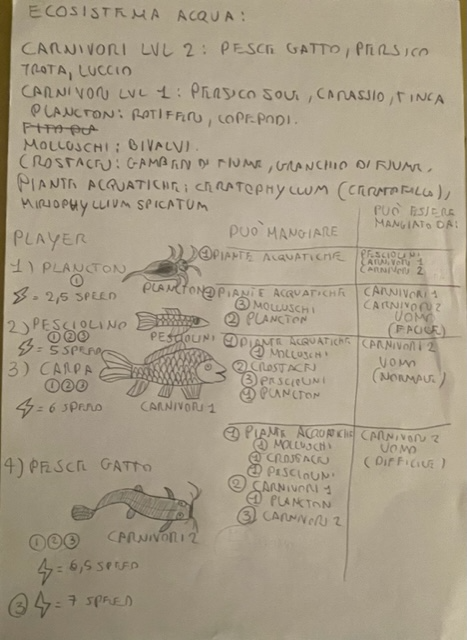 ECOSISTEMA ACQUA:
CARNIVORI LVL 2: PESCE GATTO, PERSICO
TROTA, LUCCIO
CARNIVORI LVL 1: PERSICO SOLE, CARASSIO, TINCA
PLANCTON: ROTIFERI, COPEPODI.
MOLLUSCHI: BIVALVI.
CROSTACEI: GAMBERI DI FIUME, GRANCHIO DI FIUME.
PIANTE ACQUATICHE: CERATOPHYLLUM (CERATOFILLO),
MIRIOPHYLLIUM SPICATUM
PLAYER
PUO' MANGIARE
PUO' ESSERE
MANGIATO DA:
1) PLANCTON
①
= 2,5 SPEED
PLANCTON
① PIANTE ACQUATICHE
PESCIOLINI
CARNIVORI 1
CARNIVORI 2
2) PESCIOLINO
① ② ③
= 5 SPEED
PESCIOLINI
② PIANTE ACQUATICHE
③ MOLLUSCHI
② PLANCTON
CARNIVORI 1
CARNIVORI 2
UOMO
(FACILE)
3) CARPA
① ② ③
= 6 SPEED
CARNIVORI 1
① PIANTE ACQUATICHE
① MOLLUSCHI
② CROSTACEI
③ PESCIOLINI
① PLANCTON
CARNIVORI 2
UOMO
(NORMALE)
4) PESCE GATTO
CARNIVORI 2
① ② ③
= 6,5 SPEED
③ = 7 SPEED
① PIANTE ACQUATICHE
① MOLLUSCHI
① CROSTACEI
① PESCIOLINI
② CARNIVORI 1
① PLANCTON
③ CARNIVORI 2
CARNIVORI 2
UOMO
(DIFFICILE)